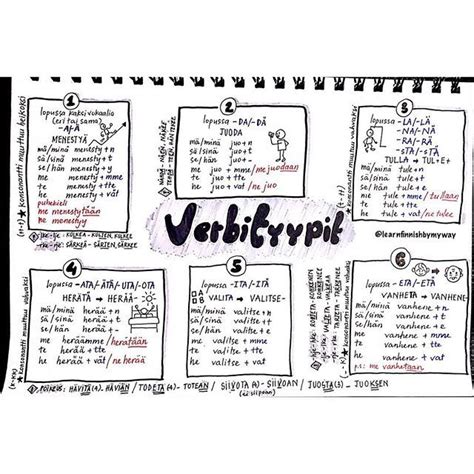 1
lopussa kaksi vokaalia
(eri tai sama)
-A/-Ä
MENESTYÄ
mä/minä menesty + n
sä/sinä menesty + t
se/hän menesty + y
me menesty + mme
te menesty + tte
he menesty + vät
puhekieli
me menestytään
he menestyy
★ konsonantti muuttuu heikoksi
2
lopussa -DA/-DÄ
JUODA
mä/minä juo + n
sä/sinä juo + t
se/hän juo
me juo + mme/me juodaan
te juo + tte
he juo + vat/ne juo
3
lopussa -LA/-LÄ
-NA/-NÄ
-RA/-RÄ
-STA/-STÄ
TULLA → TUL+E+
mä/minä tule + n
sä/sinä tule + t
se/hän tule + e
me tule + mme/me tullaan
te tule + tte
he tule + vat/ne tulee
Verbityypit
@learnfinnishbymyway
4
lopussa -ATA/-ÄTÄ/-UTA/-OTA
HERÄTÄ → HERÄÄ-
mä/minä herää + n
sä/sinä herää + t
se/hän herää
me heräämme/herätään
te herää + tte
he herää + vät/ne herää
★ konsonantti muuttuu vahvaksi
5
lopussa -ITA/-ITÄ
VALITA → VALITSE-
mä/minä valitse + n
sä/sinä valitse + t
se/hän valitse + e
me valitse + mme
te valitse + tte
he valitse + vat
6
lopussa -ETA/-ETÄ
VANHETA → VANHENE-
mä/minä vanhene + n
sä/sinä vanhene + t
se/hän vanhene + e
me vanhene + mme
te vanhene + tte
he vanhene + vat
me vanhetaan
POIKKEUS: HÄVITÄ(4)- HÄVIÄN / TODETA (4)- TOTEAN / SIIVOTA (4)- SIIVOAN / JUOSTA(3)- JUOKSEN